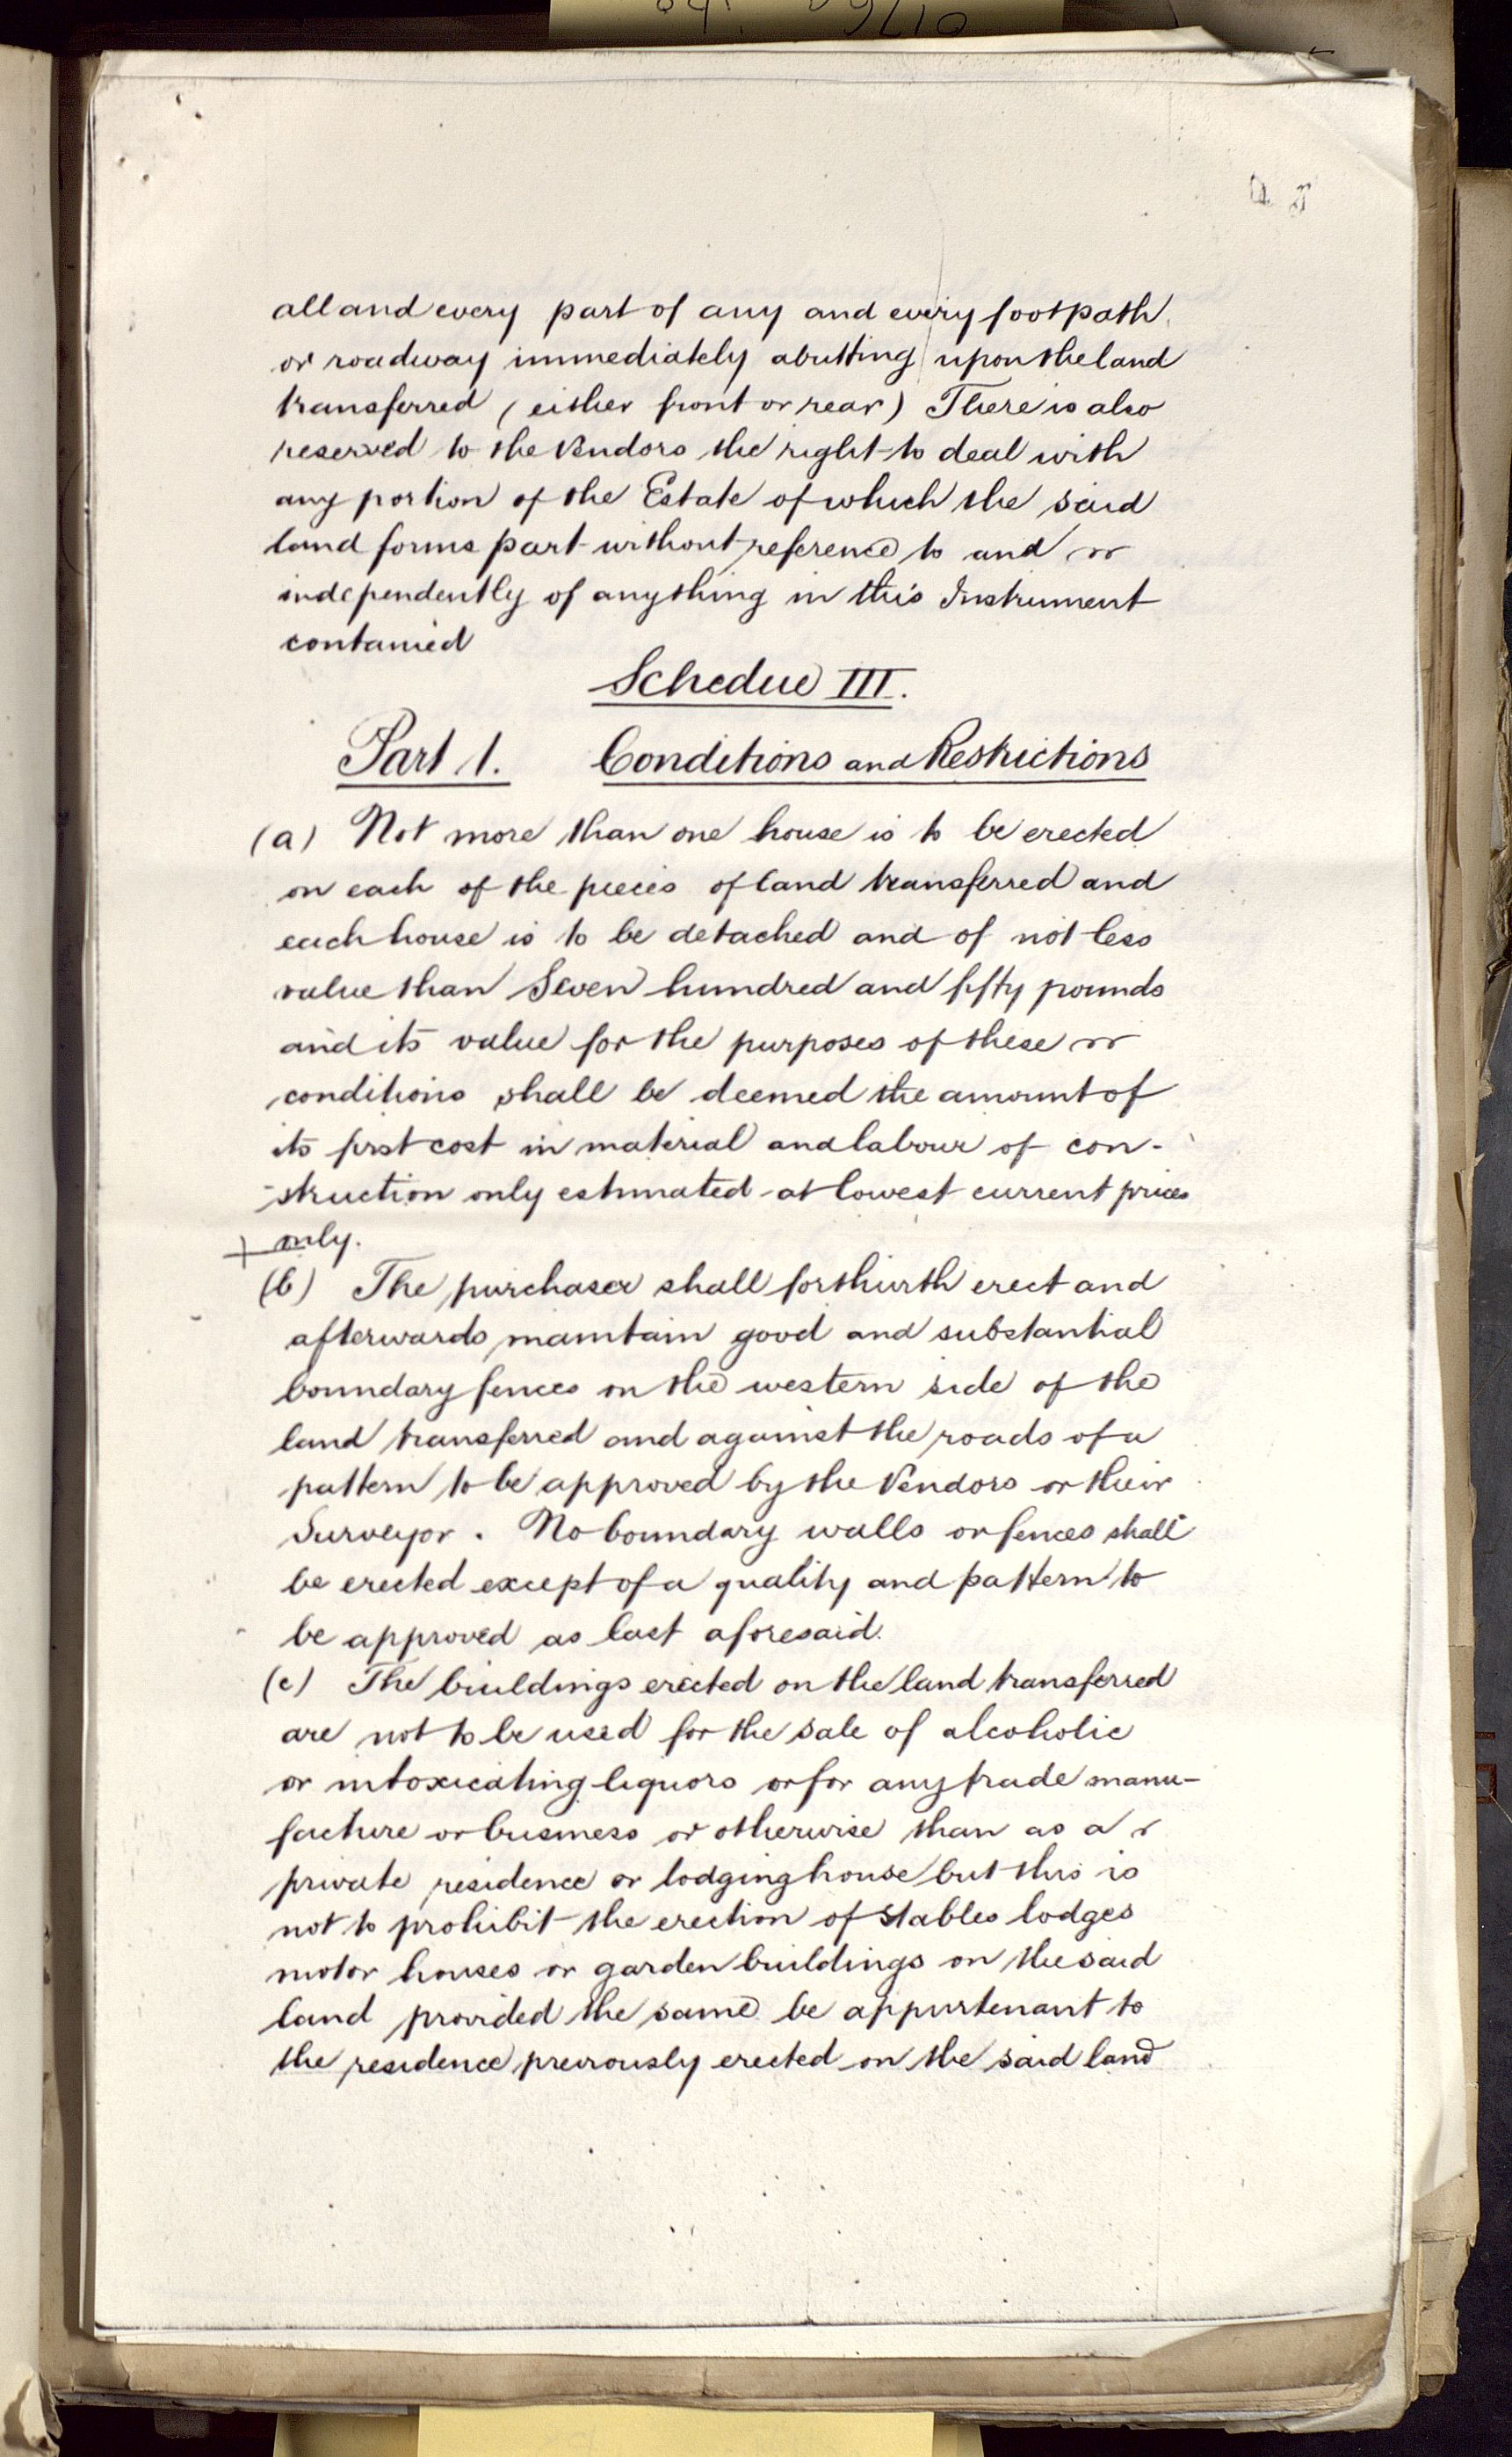 all and every part of any and every footpath
or roadway immediately abutting upon the land
transferred (either front or rear) There is also
reserved to the Vendors the right to deal with
any portion of the Estate of which the said
land forms part without reference to and
independently of anything in this Instrument
contained
Schedue III.
Part 1. Conditions and Restrictions
(a) Not more than one house is to be erected
on each of the pieces of land transferred and
each house is to be detached and of not less
value than Seven hundred and fifty pounds
and its value for the purposes of these
conditions shall be deemed the amount of
its first cost in material and labour of con-
-struction only estimated at lowest current prices
only.
(b) The purchaser shall forthwith erect and
afterwards maintain good and substantial
boundary fences on the western side of the
land transferred and against the roads of a
pattern to be approved by the Vendors or their
Surveyor. No boundary walls or fences shall
be erected except of a quality and pattern to
be approved as last aforesaid.
(c) The buildings erected on the land transferred
are not to be used for the sale of alcoholic
or intoxicating liquors or for any trade manu-
facture or business or otherwise than as a
private residence or lodging house but this is
not to prohibit the erection of stables lodges
motor houses or garden buildings on the said
land provided the same be appurtenant to
the residence previously erected on the said land